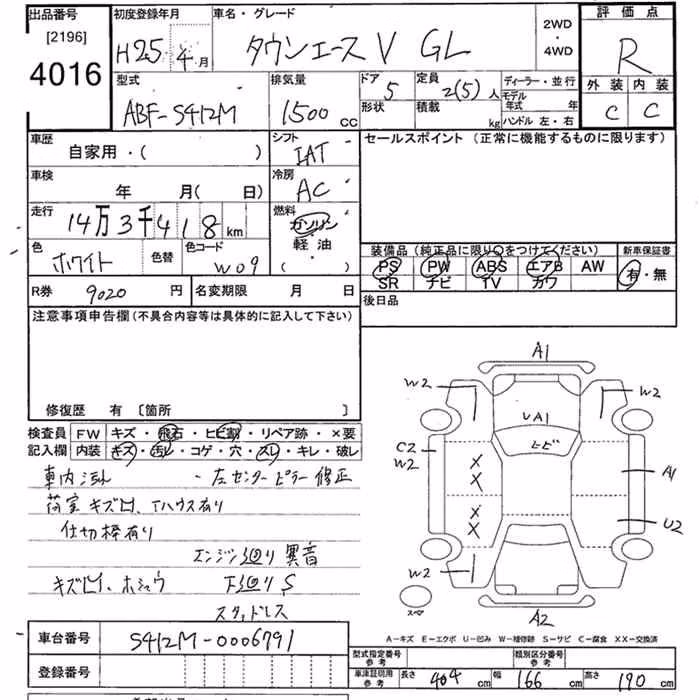 出品番号 初度登録年月 車名・グレード 2WD・4WD 評価点
[2196]
4016 H25年4月 タウンエースV GL R
型式 排気量 ドア 5 定員 2(5)人 ディーラー・並行 外装 内装
モデル年式 年
ABF-S412M 1500cc 形状 積載 kg ハンドル 左・右 C C
車歴 自家用・( ) シフト IAT セールスポイント (正常に機能するものに限ります)
車検 年 月( 日) 冷房 AC
走行 14万3千418km 燃料 ガソリン・軽油( )
色 ホワイト 色替 色コード W09 装備品(純正品に限り○をつけてください) 新車保証書
PS PW ABS エアB AW 有・無
SR ナビ TV カワ
R券 9020円 名変期限 月 日 後日品
注意事項申告欄(不具合内容等は具体的に記入して下さい)
修復歴 有 〔箇所 〕
検査員記入欄 FW キズ・飛石・ヒビ割・リペア跡・×要
内装 キズ・汚れ・コゲ・穴・スレ・キレ・破レ
車内汚れ ・左センターピラー修正
荷室キズ凹、Tハウス有り
仕切棒有り
エンジン廻り異音
キズ凹、ホシュウ 下廻りS
スタッドレス
A1
W2 W2
UA1
ヒビ
C2
W2 A1
X
X
X
X U2
W2
スペア A2
A-キズ E-エクボ U-凹み W-補修跡 S-サビ C-腐食 XX-交換済
車台番号 S412M-0006791
型式指定番号 参考 類別区分番号 参考
登録番号 車庫証明用 参考 長さ 404cm 幅 166cm 高さ 190cm